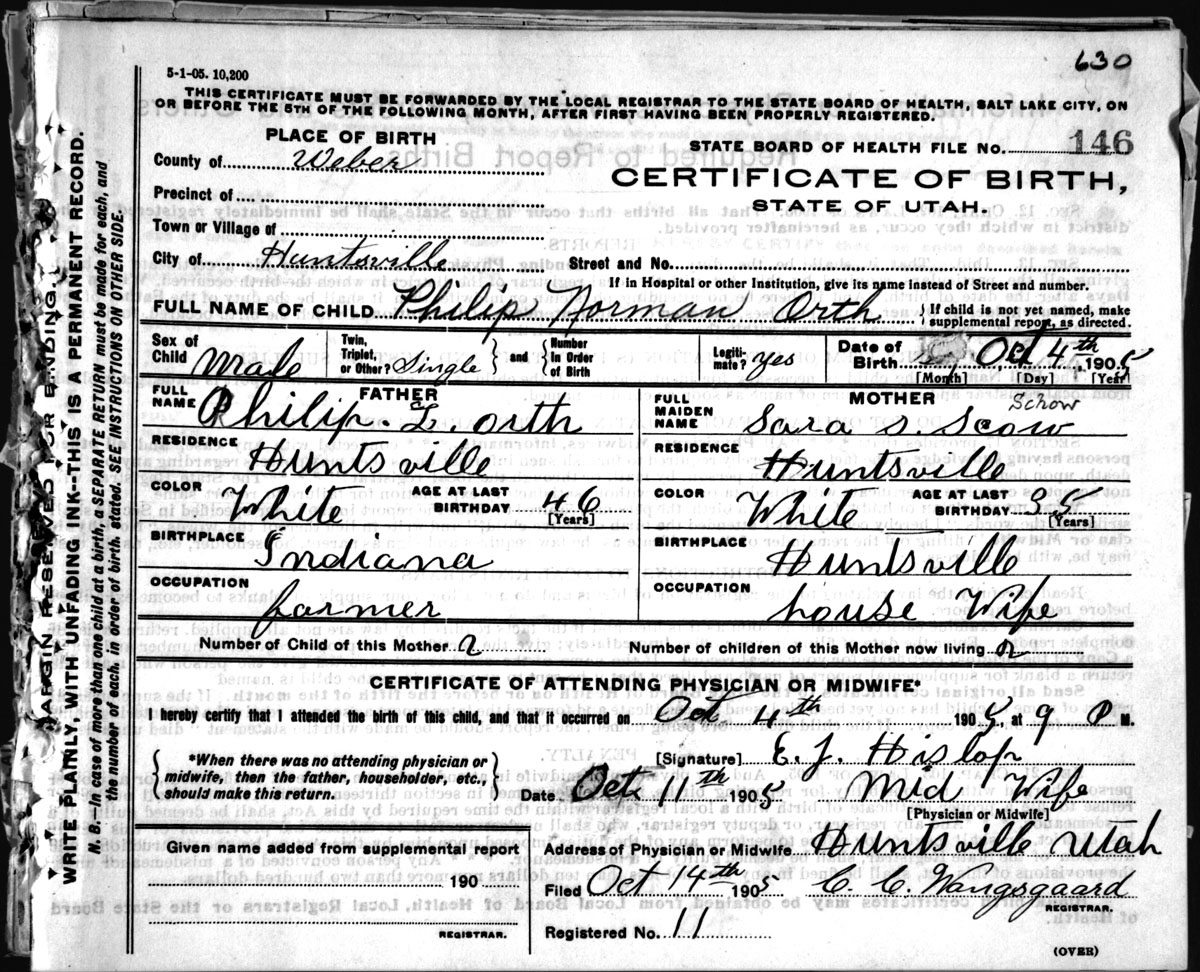 630
5-1-05. 10,200
THIS CERTIFICATE MUST BE FORWARDED BY THE LOCAL REGISTRAR TO THE STATE BOARD OF HEALTH, SALT LAKE CITY, ON
OR BEFORE THE 5TH OF THE FOLLOWING MONTH, AFTER FIRST HAVING BEEN PROPERLY REGISTERED.
PLACE OF BIRTH
STATE BOARD OF HEALTH FILE No. 146
County of Weber
CERTIFICATE OF BIRTH,
Precinct of
STATE OF UTAH.
Town or Village of
City of Huntsville Street and No.
If in Hospital or other Institution, give its name instead of Street and number.
FULL NAME OF CHILD Philip Horman Orth { If child is not yet named, make
supplemental report, as directed.
Sex of Child Male Twin, Triplet, or Other? Single } and { Number In Order of Birth Legiti- mate? yes Date of Birth Oct 4th 1905
[Month] [Day] [Year]
FATHER
FULL NAME Philip L. Orth
MOTHER
Schow
FULL MAIDEN NAME Sara S. Scow
RESIDENCE Huntsville
RESIDENCE Huntsville
COLOR White AGE AT LAST BIRTHDAY 46 [Years]
COLOR White AGE AT LAST BIRTHDAY 35 [Years]
BIRTHPLACE Indiana
BIRTHPLACE Huntsville
OCCUPATION farmer
OCCUPATION house Wife
Number of Child of this Mother 2 Number of children of this Mother now living 2
CERTIFICATE OF ATTENDING PHYSICIAN OR MIDWIFE*
I hereby certify that I attended the birth of this child, and that it occurred on Oct 4th 1905, at 9 P M.
{ *When there was no attending physician or
midwife, then the father, householder, etc.,
should make this return. }
[Signature] E. J. Hislop
Date Oct 11th 1905 Mid Wife
[Physician or Midwife]
Given name added from supplemental report
190
REGISTRAR.
Address of Physician or Midwife Huntsville Utah
Filed Oct 14th 1905 C. C. Wangsgaard
REGISTRAR.
Registered No. 11
(OVER)
MARGIN RESERVED FOR BINDING.
WRITE PLAINLY, WITH UNFADING INK--THIS IS A PERMANENT RECORD.
N. B.--In case of more than one child at a birth, a SEPARATE RETURN must be made for each, and
the number of each, in order of birth, stated. SEE INSTRUCTIONS ON OTHER SIDE.